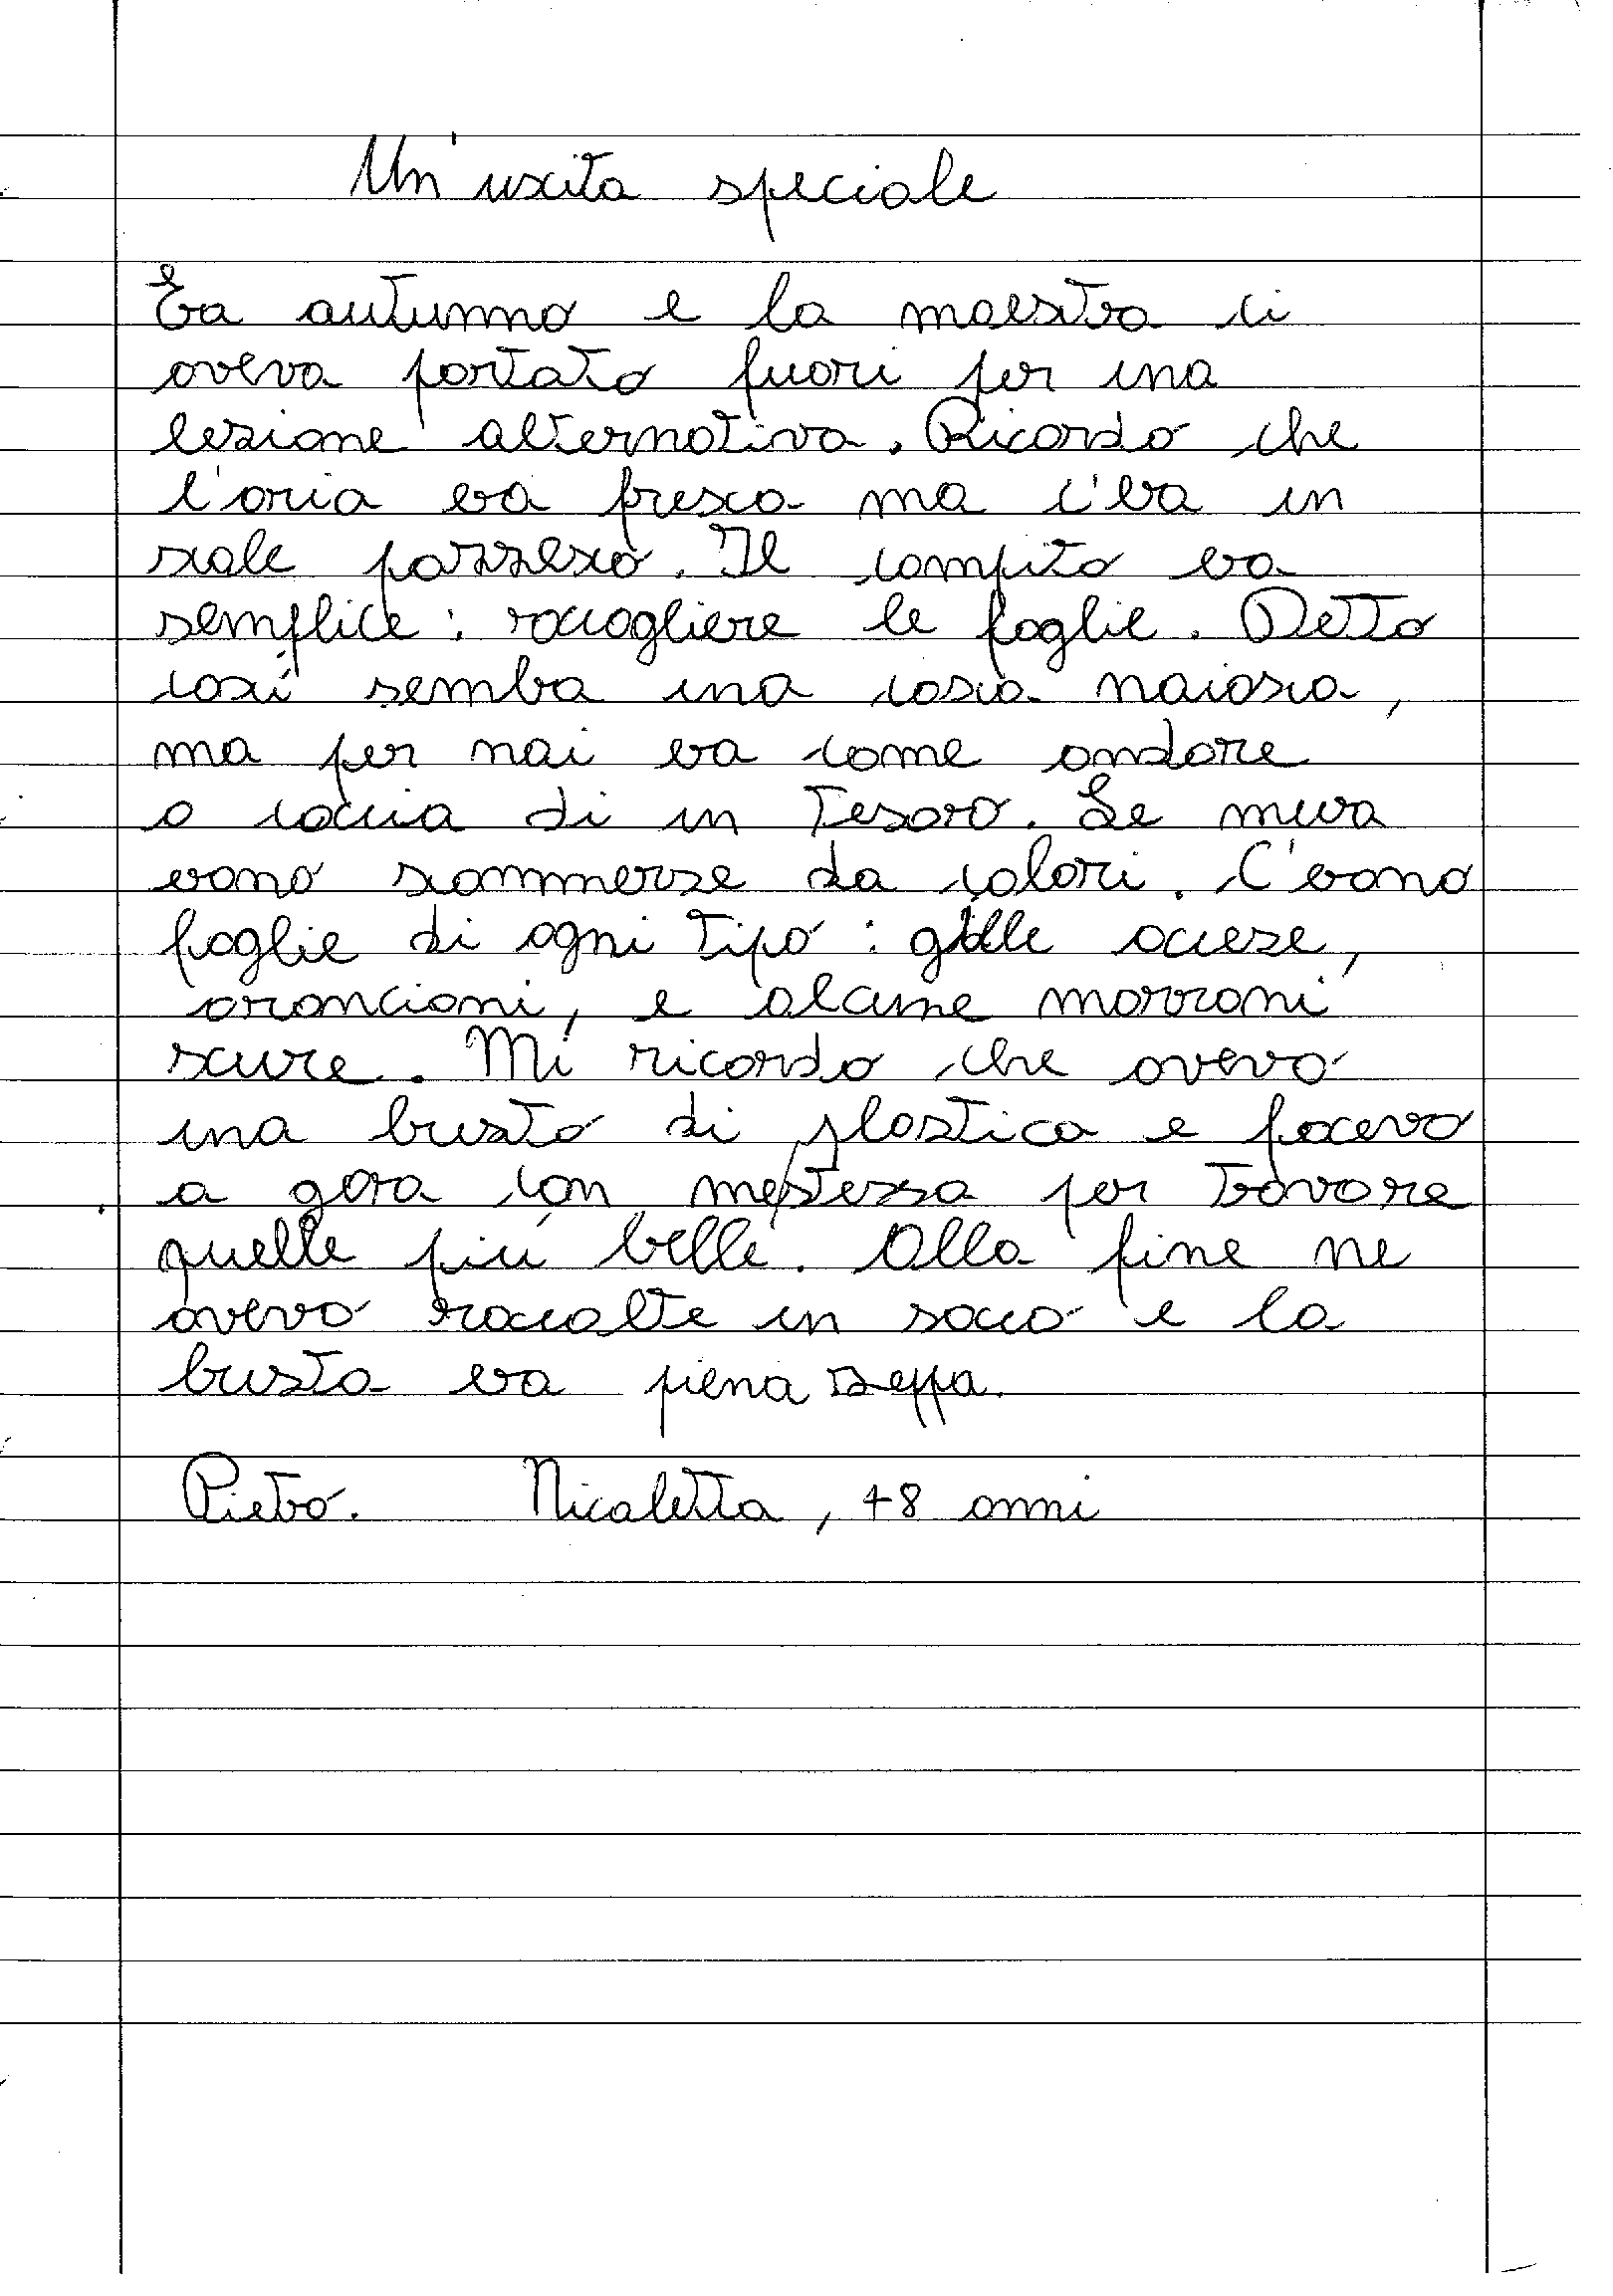 Un'uscita speciale
Era autunno e la maestra ci
aveva portato fuori per una
lezione alternativa. Ricordo che
l'aria era fresca ma c'era un
sole pazzesco. Il compito era
semplice: raccogliere le foglie. Detto
così sembra una cosa noiosa,
ma per noi era come andare
a caccia di un tesoro. Le mura
erano sommerse da colori. C'erano
foglie di ogni tipo: gialle accese,
arancioni, e alcune marroni
scure. Mi ricordo che avevo
una busta di plastica e facevo
a gara con mestessa per trovare
quelle più belle. Alla fine ne
avevo raccolte un sacco e la
busta era piena zeppa.
Pietro. Nicoletta, 48 anni